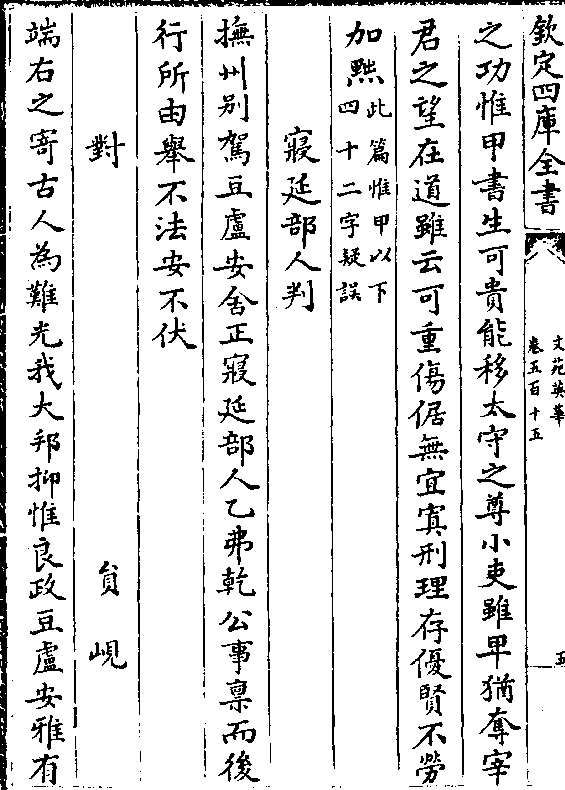 欽定四庫全書
文苑英華
卷五百十五
五
之功惟甲書生可貴能移太守之尊小吏雖甲猶奪宰
君之望在道雖云可重傷倨無宜寘刑理存優賢不勞
加㸃此篇惟甲以下四十二字疑誤
寢延部人判
撫州别駕豆盧安舍正寢延部人乙弗乾公事禀而後
行所由舉不法安不伏
對
貟峴
端右之寄古人為難光我大邦抑惟良政豆盧安雅有